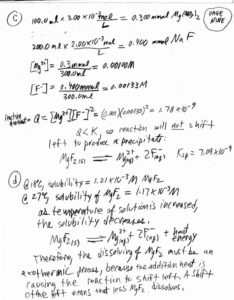 PAGE NINE
(c)
100.0 ml x 3.00 x 10⁻³ mol/L = 0.300 mmol Mg(NO₃)₂
200.0 ml x 2.00 x 10⁻³ mol/L = 0.400 mmol NaF
[Mg²⁺] = 0.3 mmol / 300.0 ml = 0.00100 M
[F⁻] = 0.400 mmol / 300.0 ml = 0.00133 M
Q = [Mg²⁺][F⁻]² = (0.001)(0.00133)² = 1.78 x 10⁻⁹
Q < K, so reaction will not shift
left to produce a precipitate.
MgF₂(s) ⇌ Mg²⁺(aq) + 2F⁻(aq) Ksp = 7.09 x 10⁻⁹
(d) @ 18°C, solubility = 1.21 x 10⁻³ M MgF₂
@ 27°C, solubility of MgF₂ = 1.17 x 10⁻³ M
as temperature of solution is increased,
the solubility decreases.
MgF₂(s) ⇌ Mg²⁺(aq) + 2F⁻(aq) + heat energy
Therefore, the dissolving of MgF₂ must be an
exothermic process, because the addition heat is
causing the reaction to shift left. A shift
to the left means that less MgF₂ dissolves.